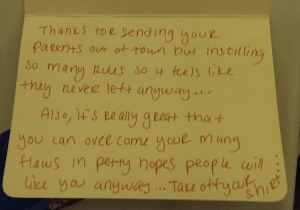 Thanks for sending your
parents out of town but instilling
so many rules so it feels like
they never left anyway...
Also, it's really great that
you can over come your many
flaws in petty hopes people will
like you anyway... Take off your shirt...